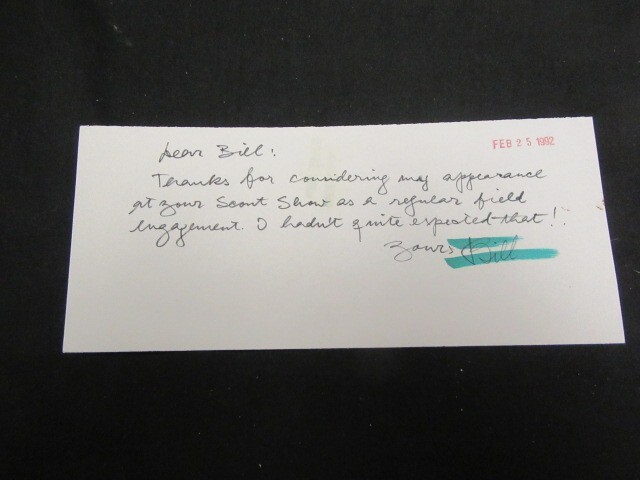 Dear Bill:
FEB 25 1992
Thanks for considering my appearance
at your Scout Show as a regular field
engagement. I hadn't quite expected that!
Yours Bill